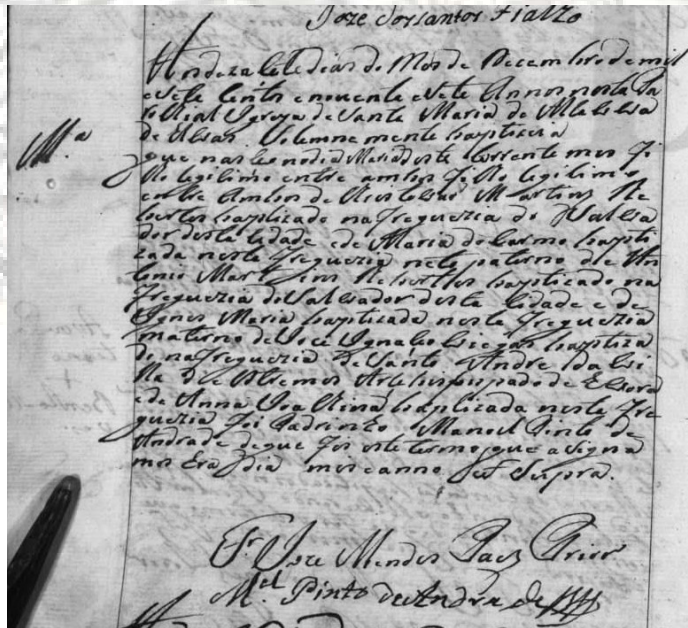 Joze dos santos Fialho
Aos dezasete dias do Mes de Dezembro de mil
e sete centos e noventa e sete Annos nesta Pa
rochial Igreja de Santa Maria de
de solemne mente baptizei a
M.ª
que nasceo no dia deste corrente mes fi
lho legitimo entre ambos filho legitimo
entre ambos de Martins Re
baptizado na freguezia do Salva
dor desta Cidade e de Maria do Carmo bapti
zada nesta freguezia neto paterno de An
tonio Martins baptizado na
freguezia do Salvador desta Cidade e de
Ignes Maria baptizada nesta freguezia
materno de Joze Ignacio baptiza
do na freguezia de Santo Andre da Vi
lla de Estremos Arcebispado de Evora
e de Anna Joaquina baptizada nesta fre
guezia foi Padrinho Manoel Pinto de
Andrade de que fis este termo que asigna
mos Era dia mes e anno ut supra.
Fr. Joze Mendes Paes Prior
M.el Pinto de Andrade